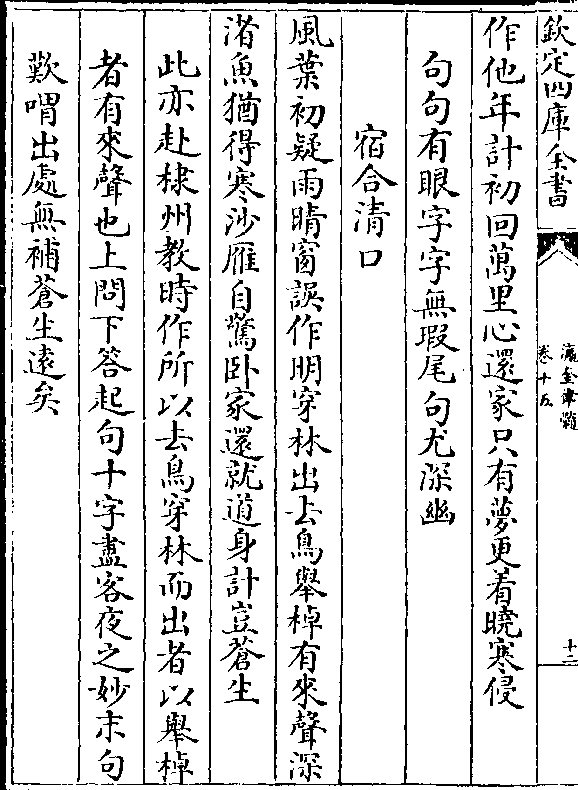 欽定四庫全書
瀛奎律髓
卷十五
十二
作他年計初回萬里心還家只有夢更着曉寒侵
句句有眼字字無瑕尾句尤深幽
宿合清口
風葉初疑雨晴窗誤作明穿林出去鳥舉棹有來聲深
渚魚猶得寒沙雁自驚卧家還就道身計豈蒼生
此亦赴棣州教時作所以去鳥穿林而出者以舉棹
者有來聲也上問下答起句十字盡客夜之妙末句
歎喟出處無補蒼生遠矣